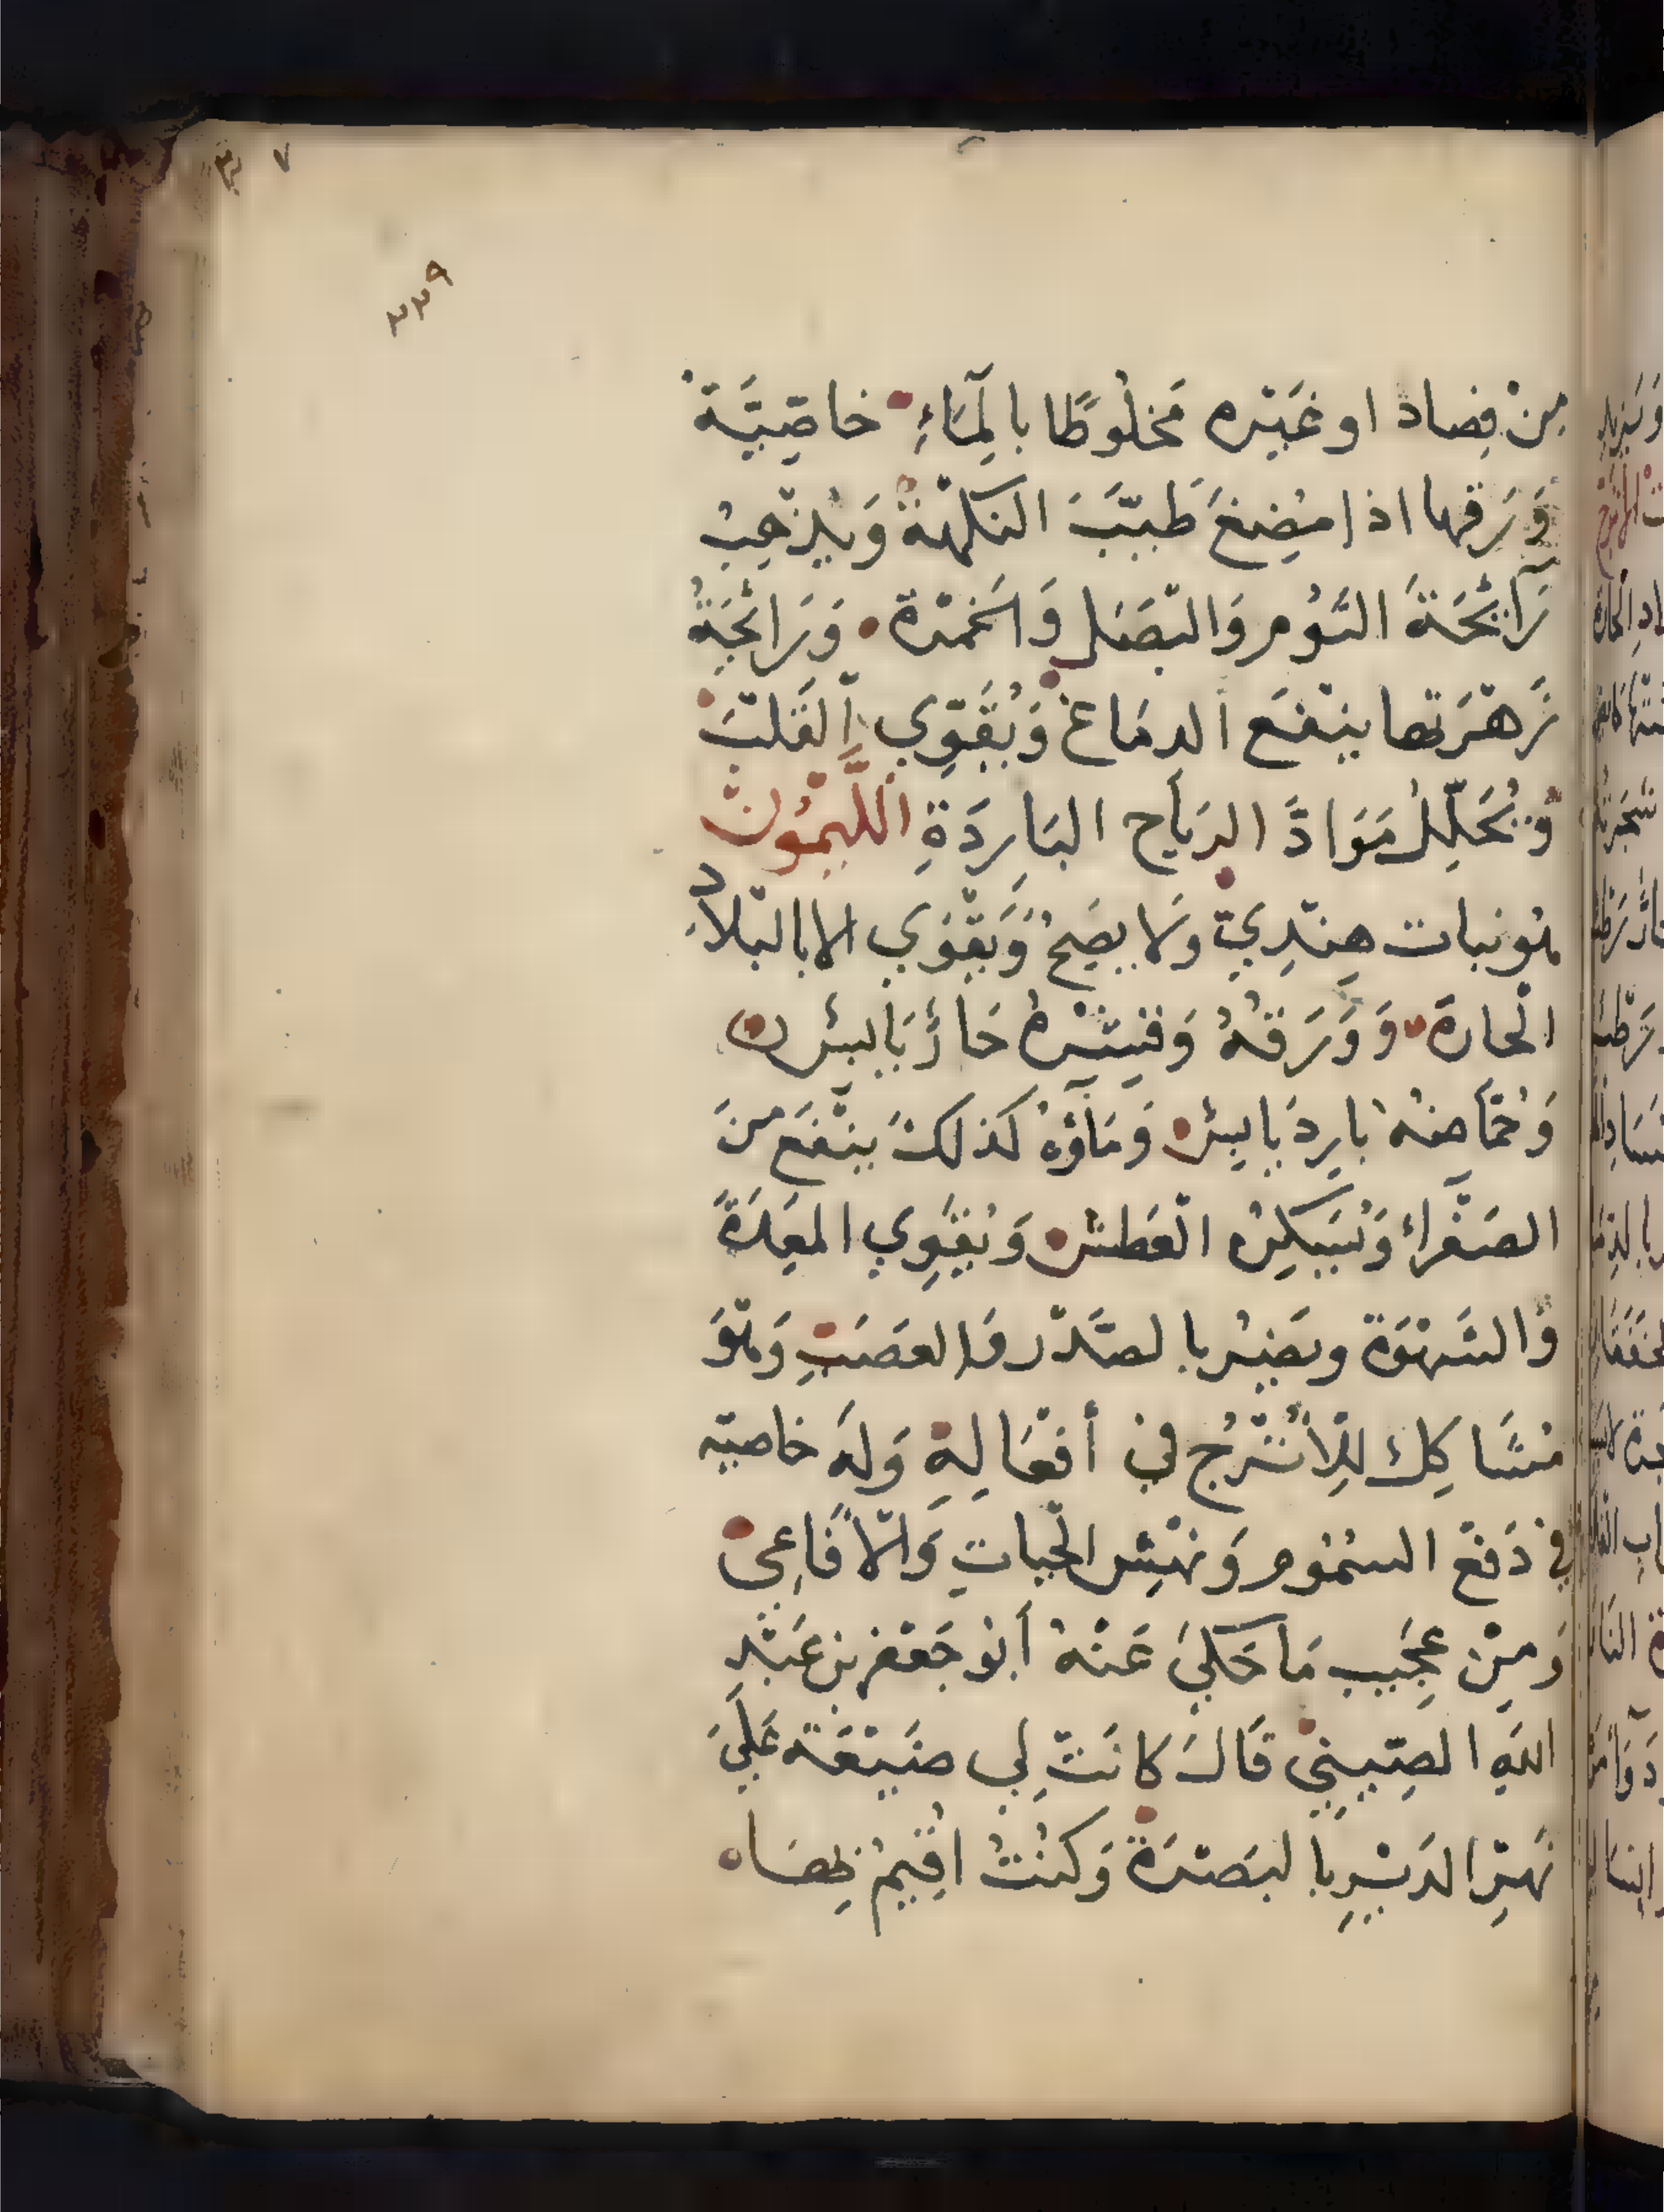 مِنْ فِصاد او غَيْره مَخلُوطًا بالمَاءِ خاصِيَّة
وَرَقها اذا مُضِغَ طَيَّبَ النكْهَةَ وَيُذْهِبُ
رَآئحَةَ الثُوم وَالبَصَل وَالخمْرة وَرَائحَةُ
زَهْرَتها ينْفَع الدمَاغ وَيُقَوِّي القَلبَ
وَيُحَلِّلُ مَوَادَّ الرياح البَارِدَةِ اللَّيمُون
هُو نبات هِنْدِيّ ولا يصَحُ وَيَقْوَي الا بالبلادِ
الحارة وَوَرَقهُ وَقشرهُ حَارٌ يَابسٌ
وَحُمّاضهُ بارد يابس وَمَاؤهُ كذلك ينْفَع من
الصَفْراءِ وَيُسَكِن العَطش وَيُقَوِي المعِدَة
وَالشَهْوَة ويضر بالصَدْر وَالعَصَبِ وَهْوَ
مُشَاكِل لِلأُتْرُج في أفعَالِهِ وَلَه خاصيه
في دَفع السُمُوم وَنهْشِ الحيات وَالأفَاعِى
وَمِنْ عجيب مَا حَكى عَنْهُ أبُو جَعْفر بن عَبْدِ
اللهِ الصِّيني قَالَ كانَتْ لِي ضَيْعَة عَلَى
نَهرِ الدَيرِ بالبَصْرَة وَكُنْتُ اقِيمُ بِهَا